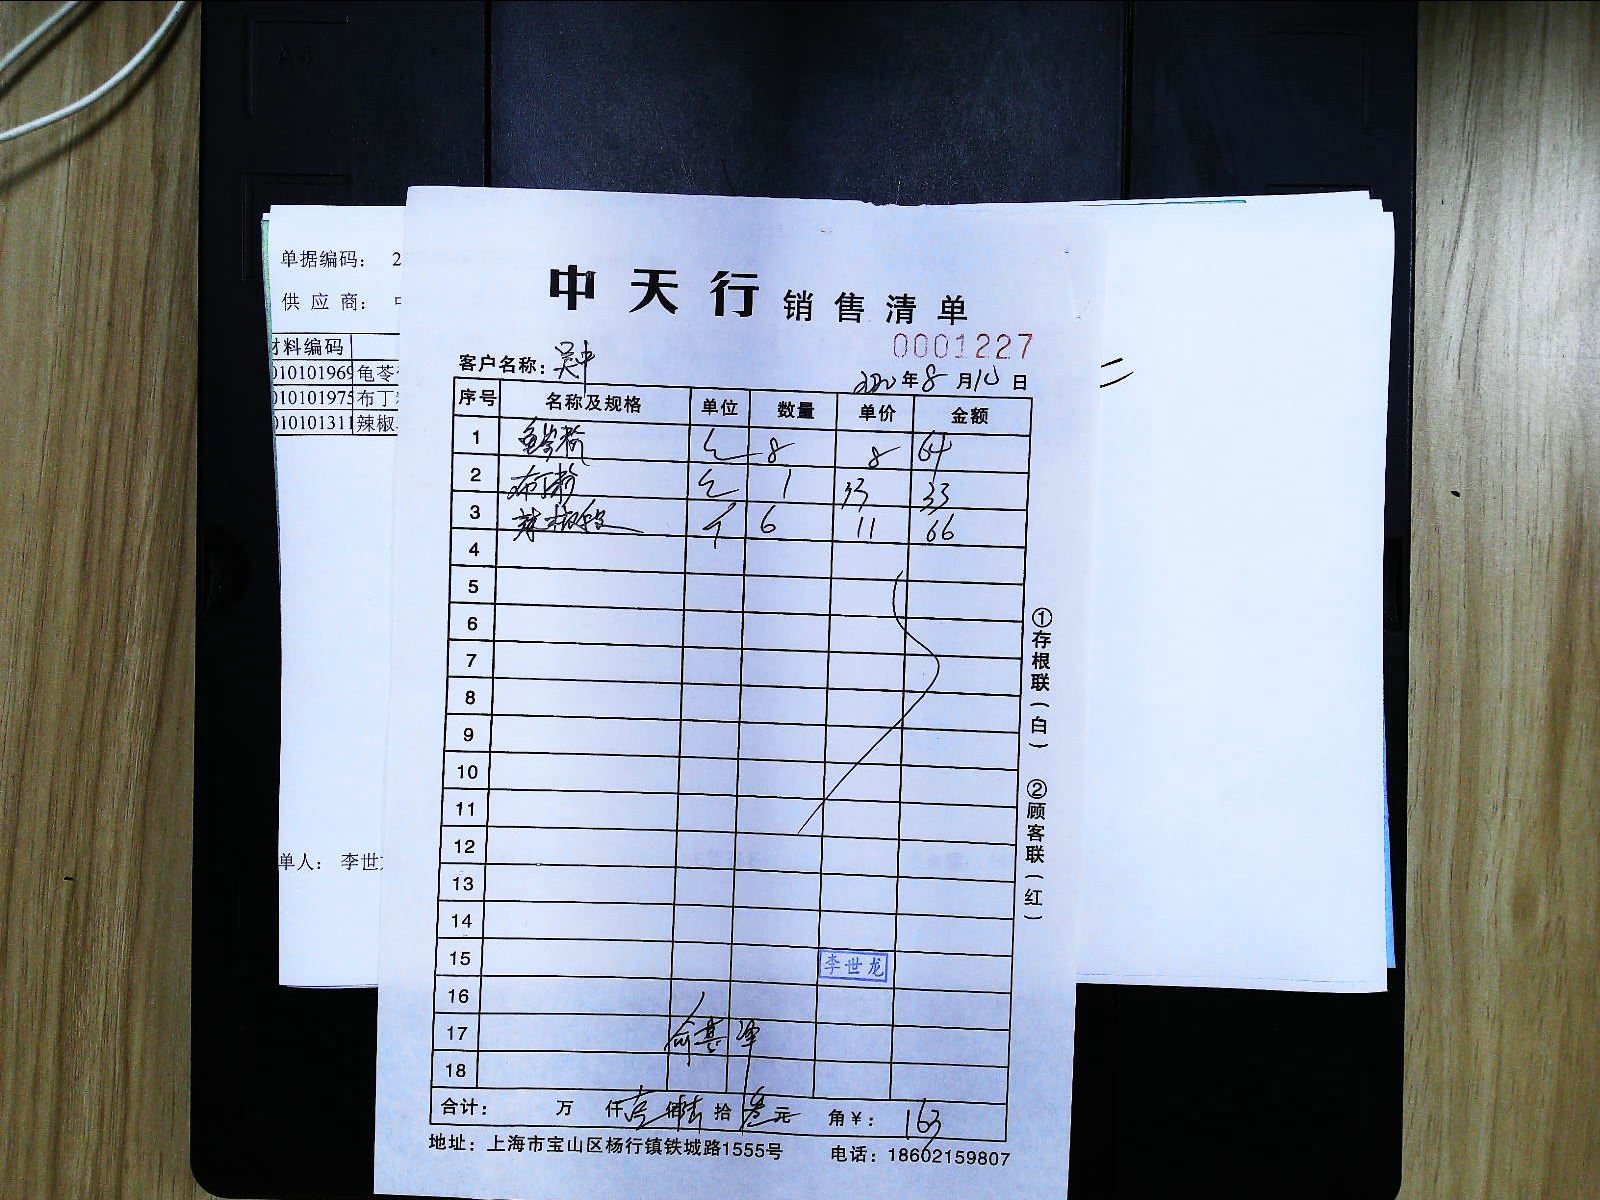 单据编码: 2
供应商:
材料编码
010101969 龟苓
010101975 布丁
010101311 辣椒
单人: 李世
中天行 销售清单
0001227
客户名称: 吴中
2020年8月10日
二
序号 名称及规格 单位 数量 单价 金额
1 龟苓粉 8 8 64
2 布丁粉 1 33 33
3 辣椒段 个 6 11 66
4
5
6
7
8
9
10
11
12
13
14
15 李世龙
16
17
18
合计: 万 仟壹佰陆拾叁元 角¥: 163
①存根联(白) ②顾客联(红)
地址: 上海市宝山区杨行镇铁城路1555号 电话: 18602159807